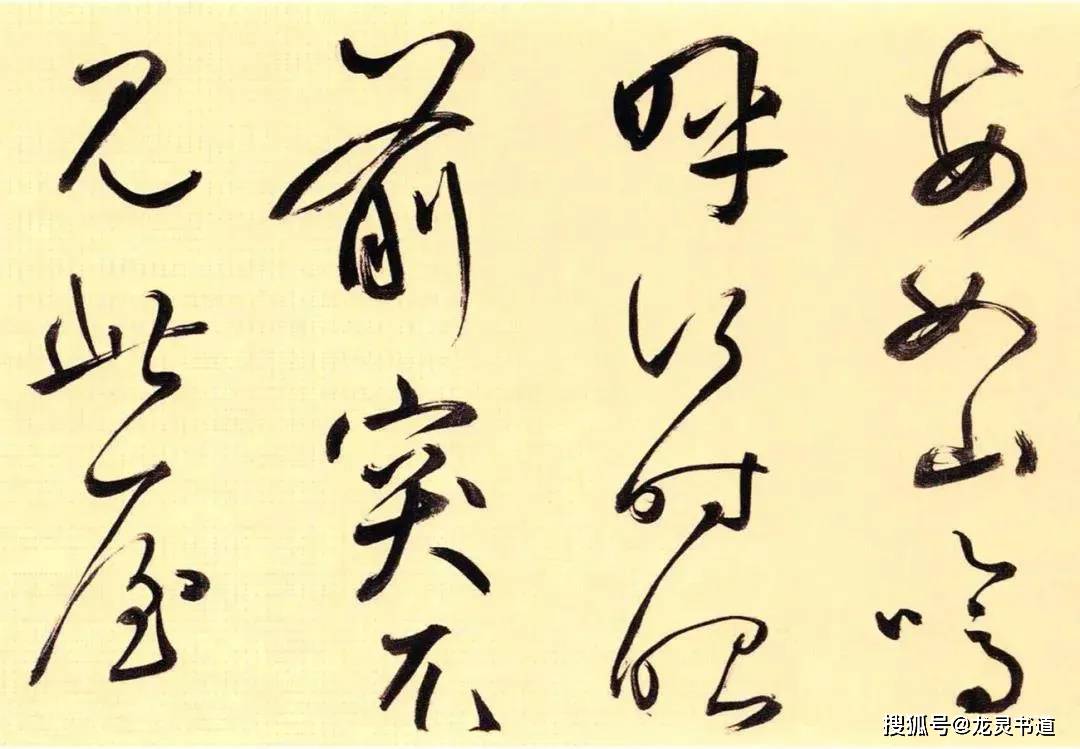 安如山嗚
呼何时眼
前突兀
见此屋
搜狐号@龙灵书道